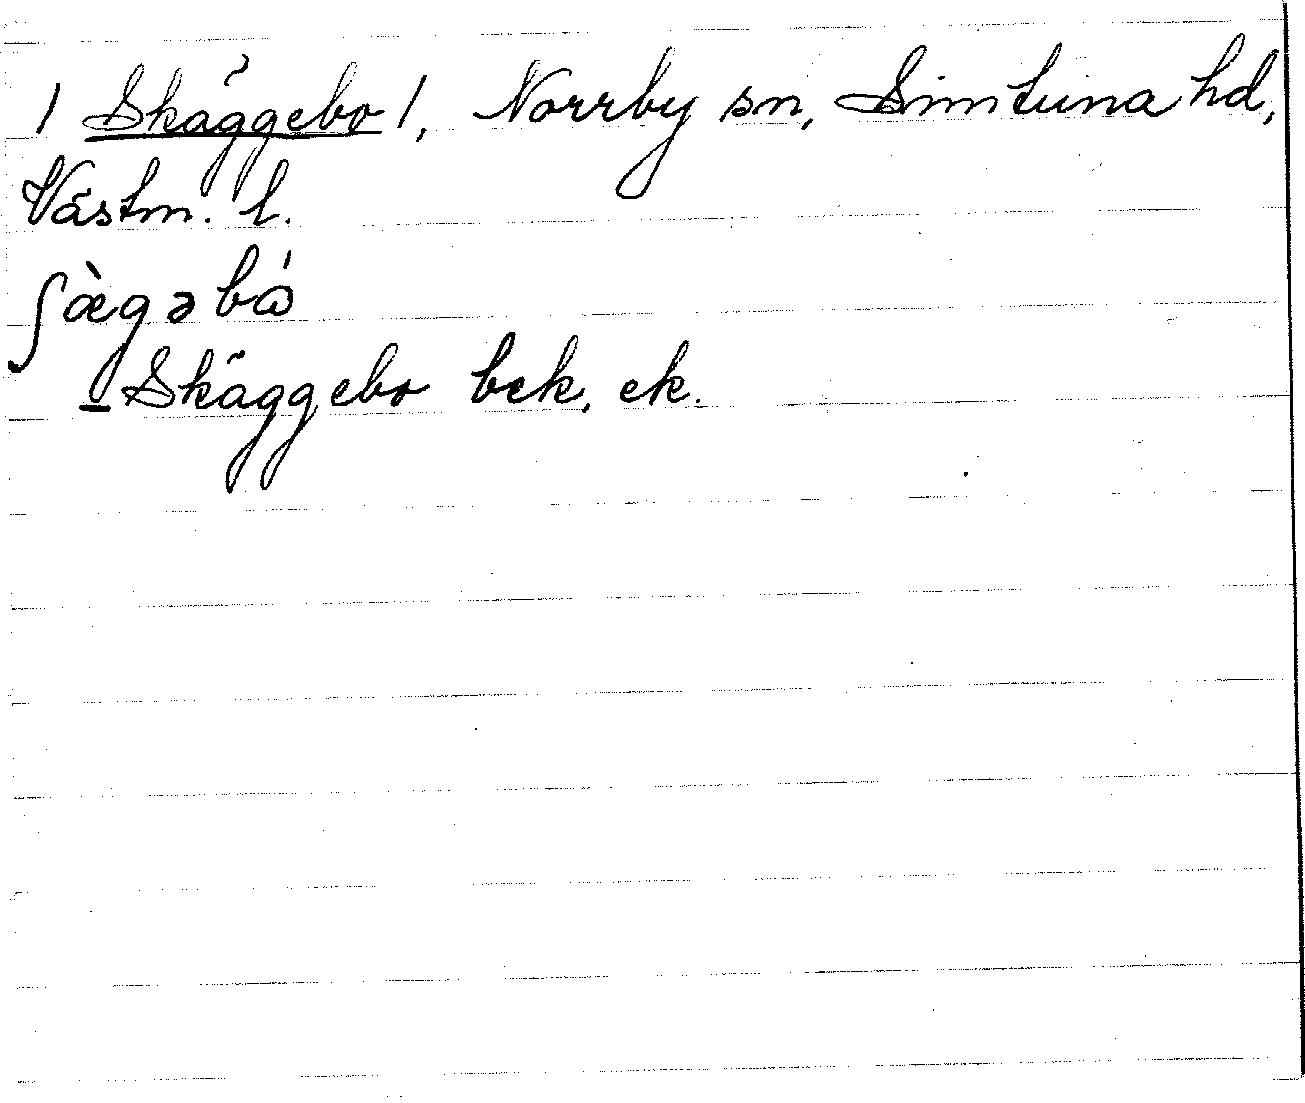 / Skäggebo /, Norrby sn, Simtuna hd,
Västm. l.
ʃæ̀gəbó
– Skäggebo bek, ek.